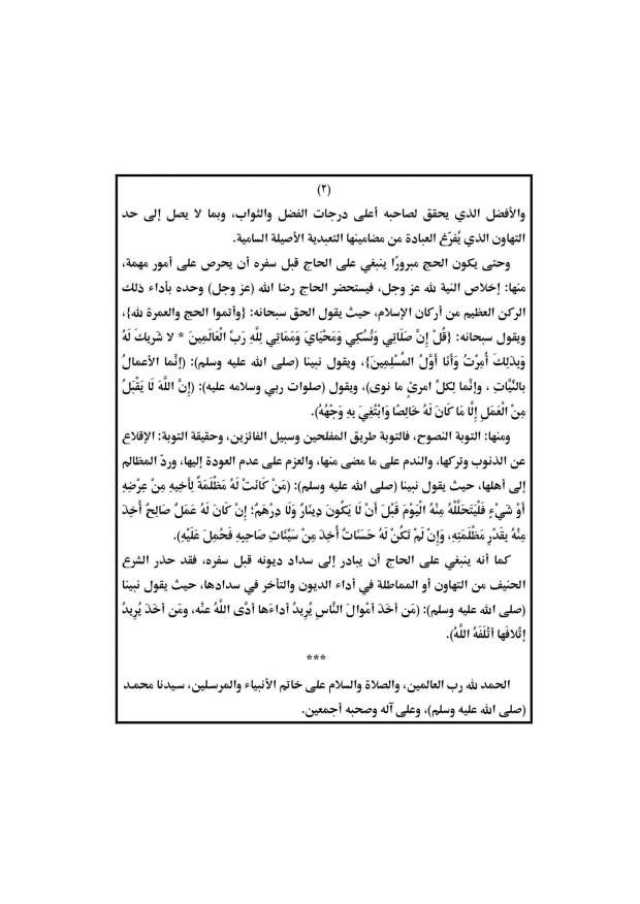 (٢)
والأفضل الذي يحقق لصاحبه أعلى درجات الفضل والثواب، وبما لا يصل إلى حد
التهاون الذي يُفرّغ العبادة من مضامينها التعبدية الأصيلة السامية.
وحتى يكون الحج مبرورًا ينبغي على الحاج قبل سفره أن يحرص على أمور مهمة،
منها: إخلاص النية لله عز وجل، فيستحضر الحاج رضا الله (عز وجل) وحده بأداء ذلك
الركن العظيم من أركان الإسلام، حيث يقول الحق سبحانه: {وأتموا الحج والعمرة لله}،
ويقول سبحانه: {قُلْ إِنَّ صَلَاتِي وَنُسُكِي وَمَحْيَايَ وَمَمَاتِي لِلَّهِ رَبِّ الْعَالَمِينَ * لا شَرِيكَ لَهُ
وَبِذَلِكَ أُمِرْتُ وَأَنَا أَوَّلُ الْمُسْلِمِينَ}، ويقول نبينا (صلى الله عليه وسلم): (إنَّما الأعمالُ
بالنِّيَّاتِ ، وإنَّما لِكلِّ امرئٍ ما نوى)، ويقول (صلوات ربي وسلامه عليه): (إنَّ اللَّهَ لَا يَقْبَلُ
مِنْ الْعَمَلِ إِلَّا مَا كَانَ لَهُ خَالِصًا وَابْتُغِيَ بِهِ وَجْهُهُ).
ومنها: التوبة النصوح، فالتوبة طريق المفلحين وسبيل الفائزين، وحقيقة التوبة: الإقلاع
عن الذنوب وتركها، والندم على ما مضى منها، والعزم على عدم العودة إليها، وردّ المظالم
إلى أهلها، حيث يقول نبينا (صلى الله عليه وسلم): (مَنْ كَانَتْ لَهُ مَظْلَمَةٌ لِأَخِيهِ مِنْ عِرْضِهِ
أَوْ شَيْءٍ فَلْيَتَحَلَّلْهُ مِنْهُ الْيَوْمَ قَبْلَ أَنْ لَا يَكُونَ دِينَارٌ وَلَا دِرْهَمٌ؛ إِنْ كَانَ لَهُ عَمَلٌ صَالِحٌ أُخِذَ
مِنْهُ بِقَدْرِ مَظْلَمَتِهِ، وَإِنْ لَمْ تَكُنْ لَهُ حَسَنَاتٌ أُخِذَ مِنْ سَيِّئَاتِ صَاحِبِهِ فَحُمِلَ عَلَيْهِ).
كما أنه ينبغي على الحاج أن يبادر إلى سداد ديونه قبل سفره، فقد حذر الشرع
الحنيف من التهاون أو المماطلة في أداء الديون والتأخر في سدادها، حيث يقول نبينا
(صلى الله عليه وسلم): (مَن أخَذَ أمْوالَ النَّاسِ يُرِيدُ أداءَها أدَّى اللَّهُ عنْه، ومَن أخَذَ يُرِيدُ
إتْلافَها أتْلَفَهُ اللَّهُ).
***
الحمد لله رب العالمين، والصلاة والسلام على خاتم الأنبياء والمرسلين، سيدنا محمد
(صلى الله عليه وسلم)، وعلى آله وصحبه أجمعين.